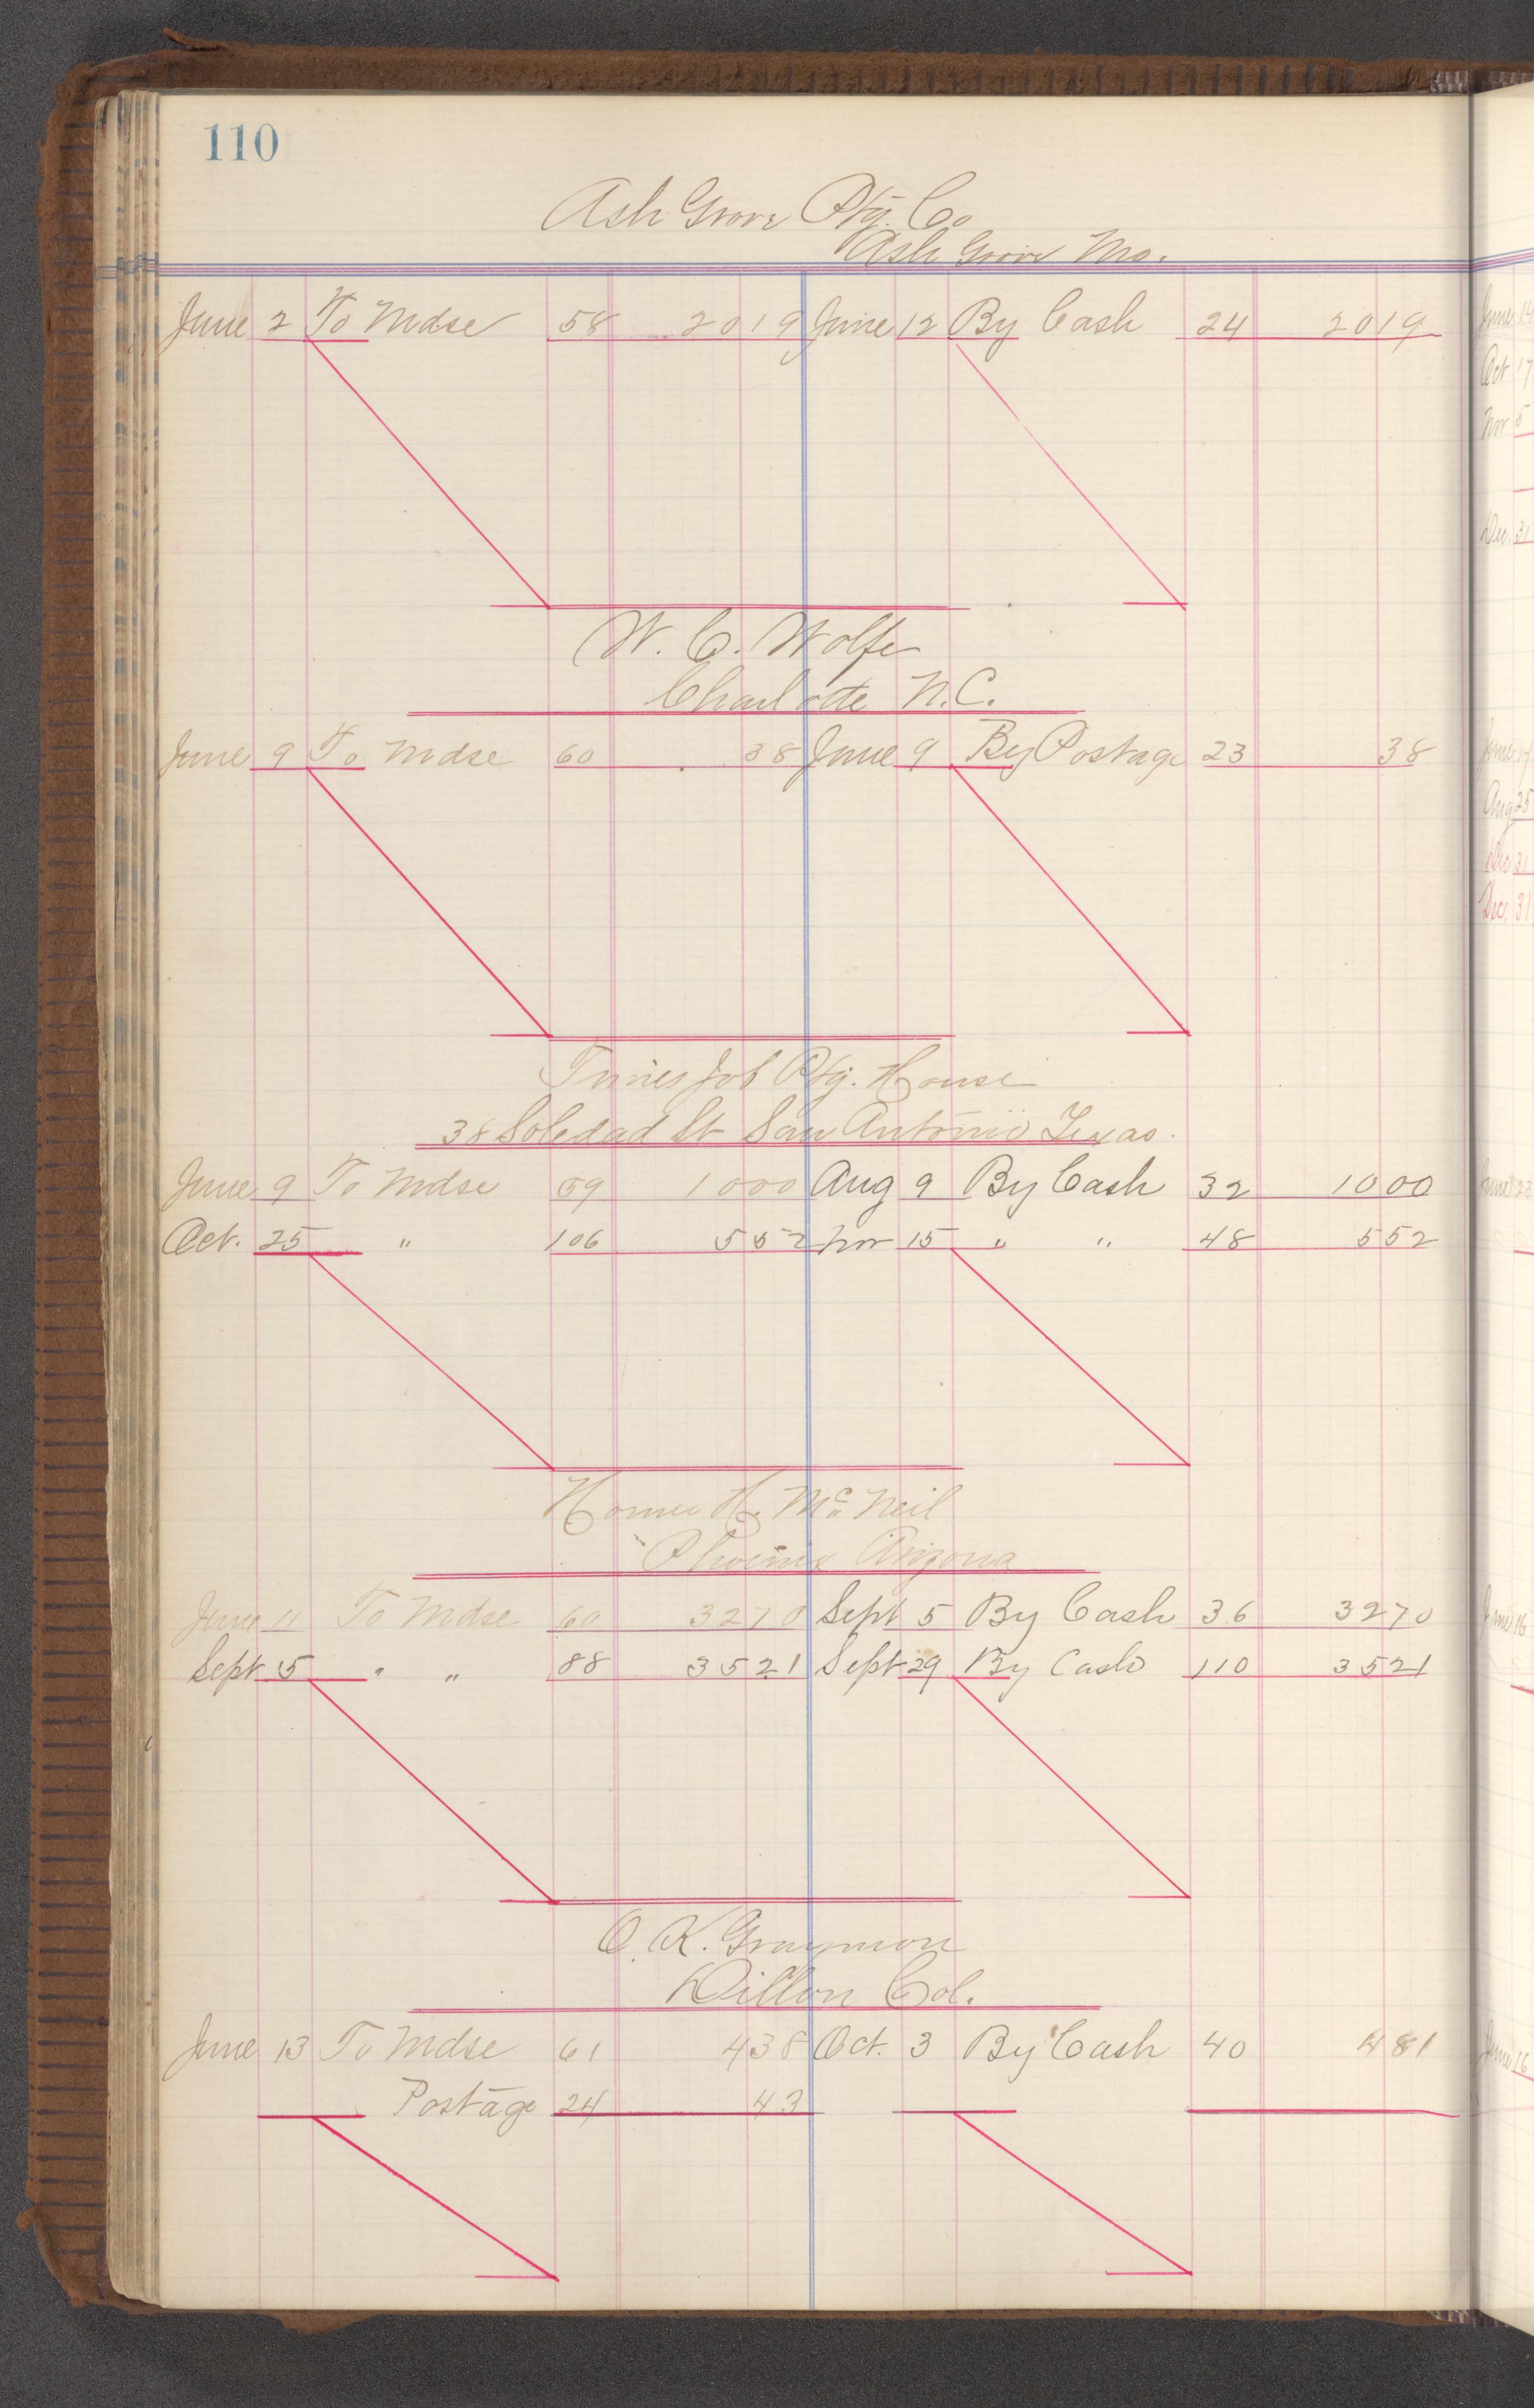 110
Ash Grove Ptg. Co
Ash Grove Mo.
June 2 To Mdse 58 2019 June 12 By Cash 24 2019
W. C. Wolfe
Charlotte N.C.
June 9 To Mdse 60 38 June 9 By Postage 23 38
Times Job Ptg. House
38 Soledad St San Antonio Texas.
June 9 To Mdse 59 1000 Aug 9 By Cash 32 1000
Oct. 25 " 106 552 Nov 15 " " 48 552
Homer H. McNeil
Phoenix Arizona
June 11 To Mdse 60 3270 Sept 5 By Cash 36 3270
Sept 5 " " 88 3521 Sept 29 By Cash 110 3521
O. K.
Dillon Col.
June 13 To Mdse 61 438 Oct. 3 By Cash 40 481
Postage 24 43
June 14
Oct 17
Nov 5
Dec. 31
June
Aug 25
Dec 31
Dec. 31
June 23
June 16
June 16